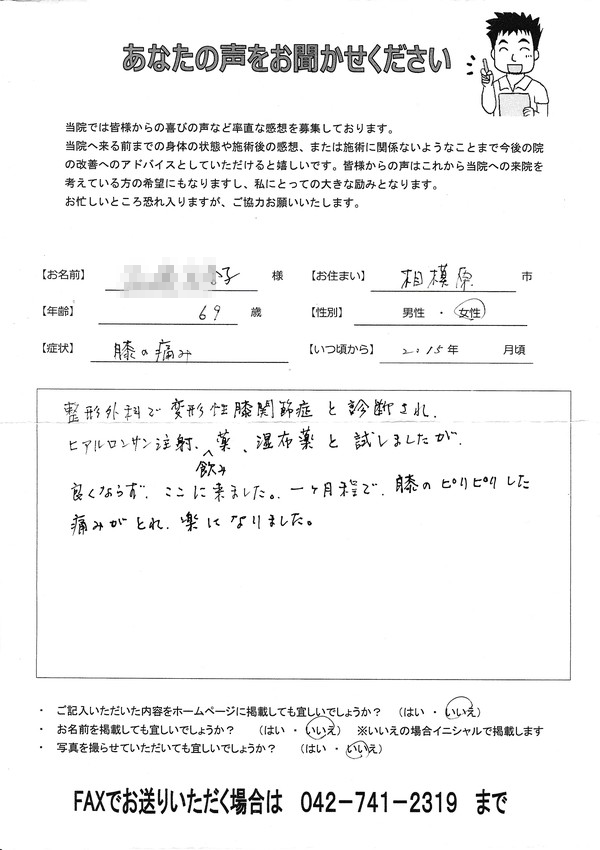 あなたの声をお聞かせください
当院では皆様からの喜びの声など率直な感想を募集しております。
当院へ来る前までの身体の状態や施術後の感想、または施術に関係ないようなことまで今後の院
の改善へのアドバイスとしていただけると嬉しいです。皆様からの声はこれから当院への来院を
考えている方の希望にもなりますし、私にとっての大きな励みとなります。
お忙しいところ恐れ入りますが、ご協力お願いいたします。
【お名前】 子 様 【お住まい】 相模原 市
【年齢】 69 歳 【性別】 男性 ・ 女性
【症状】 膝の痛み 【いつ頃から】 2015年 月頃
整形外科で変形性膝関節症と診断され、
ヒアルロンサン注射、飲み薬、湿布薬と試しましたが、
良くならず、ここに来ました。一ヶ月程で、膝のピリピリした
痛みがとれ、楽になりました。
・ ご記入いただいた内容をホームページに掲載しても宜しいでしょうか? (はい ・ いいえ)
・ お名前を掲載しても宜しいでしょうか? (はい ・ いいえ) ※いいえの場合イニシャルで掲載します
・ 写真を撮らせていただいても宜しいでしょうか? (はい ・ いいえ)
FAXでお送りいただく場合は 042-741-2319 まで